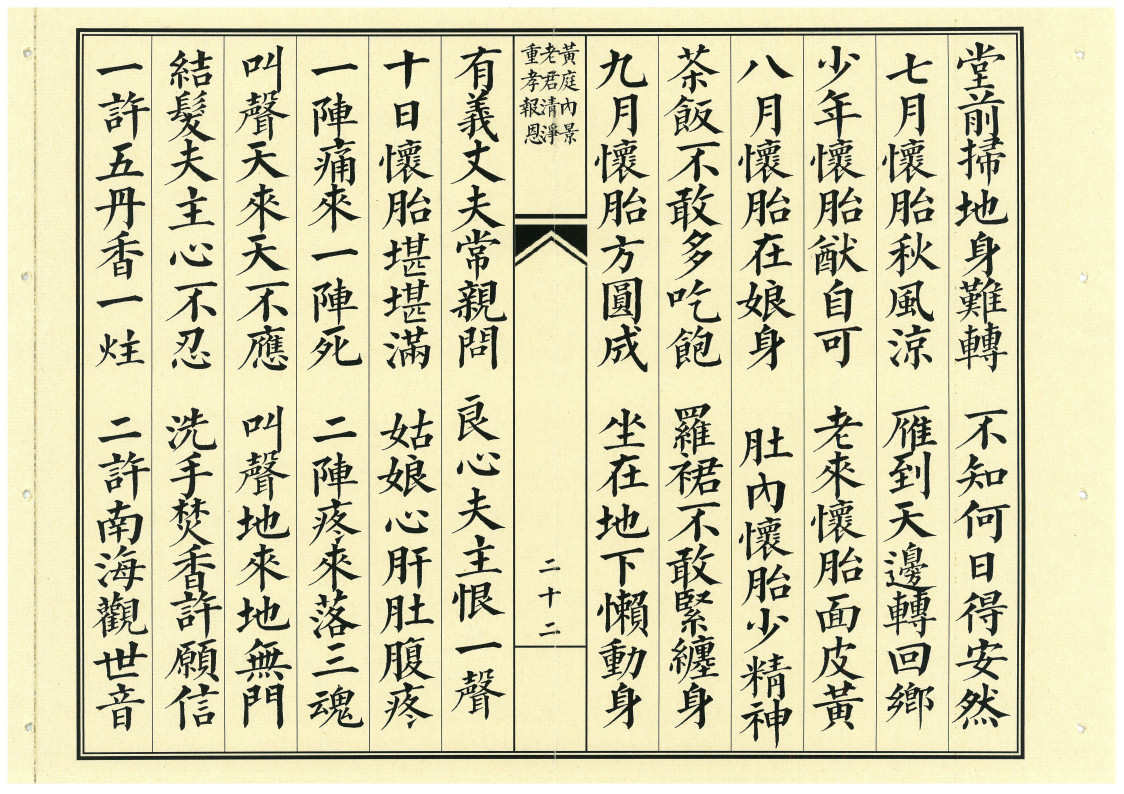 堂前掃地身難轉 不知何日得安然
七月懷胎秋風涼 雁到天邊轉回鄉
少年懷胎猷自可 老來懷胎面皮黃
八月懷胎在娘身 肚內懷胎少精神
茶飯不敢多吃飽 羅裙不敢緊纏身
九月懷胎方圓成 坐在地下懶動身
黃庭內景
老君清淨
重孝報恩
二十二
有義丈夫常親問 良心夫主恨一聲
十日懷胎堪堪滿 姑娘心肝肚腹疼
一陣痛來一陣死 二陣疼來落三魂
叫聲天來天不應 叫聲地來地無門
結髮夫主心不忍 洗手焚香許願信
一許五丹香一炷 二許南海觀世音